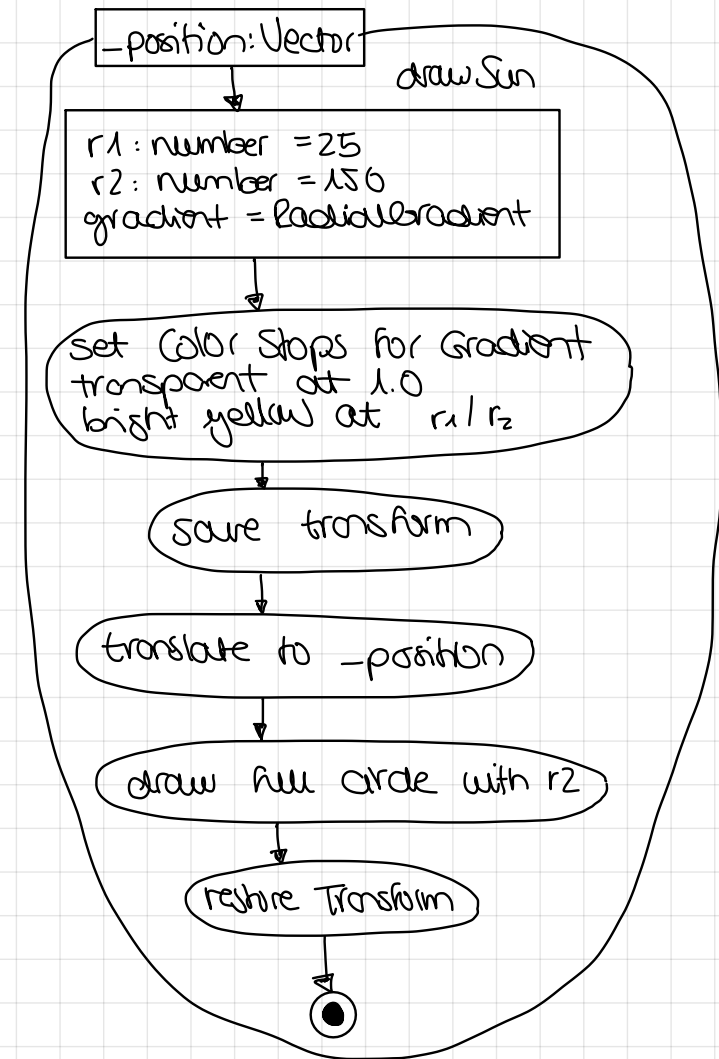 _position: Vector
drawSun
r1: number = 25
r2: number = 150
gradient = RadialGradient
set Color Stops for Gradient
transparent at 1.0
bright yellow at r1/r2
save transform
translate to _position
draw full circle with r2
restore Transform